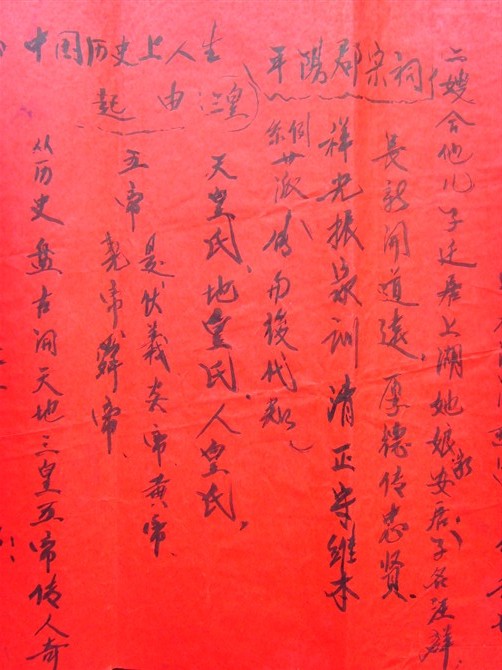 二嫂合他儿子迁居上湖她娘家安居子名
平陽郡宗祠
長新開道遠，厚德传忠賢
祥光振家训清正守维本
系例廿派傳而後代知
中国历史上人生
起由三皇
天皇氏、地皇氏、人皇氏，
五帝是伏羲炎帝黄帝、
尧帝舜帝、
从历史盘古開天地三皇五帝传人奇